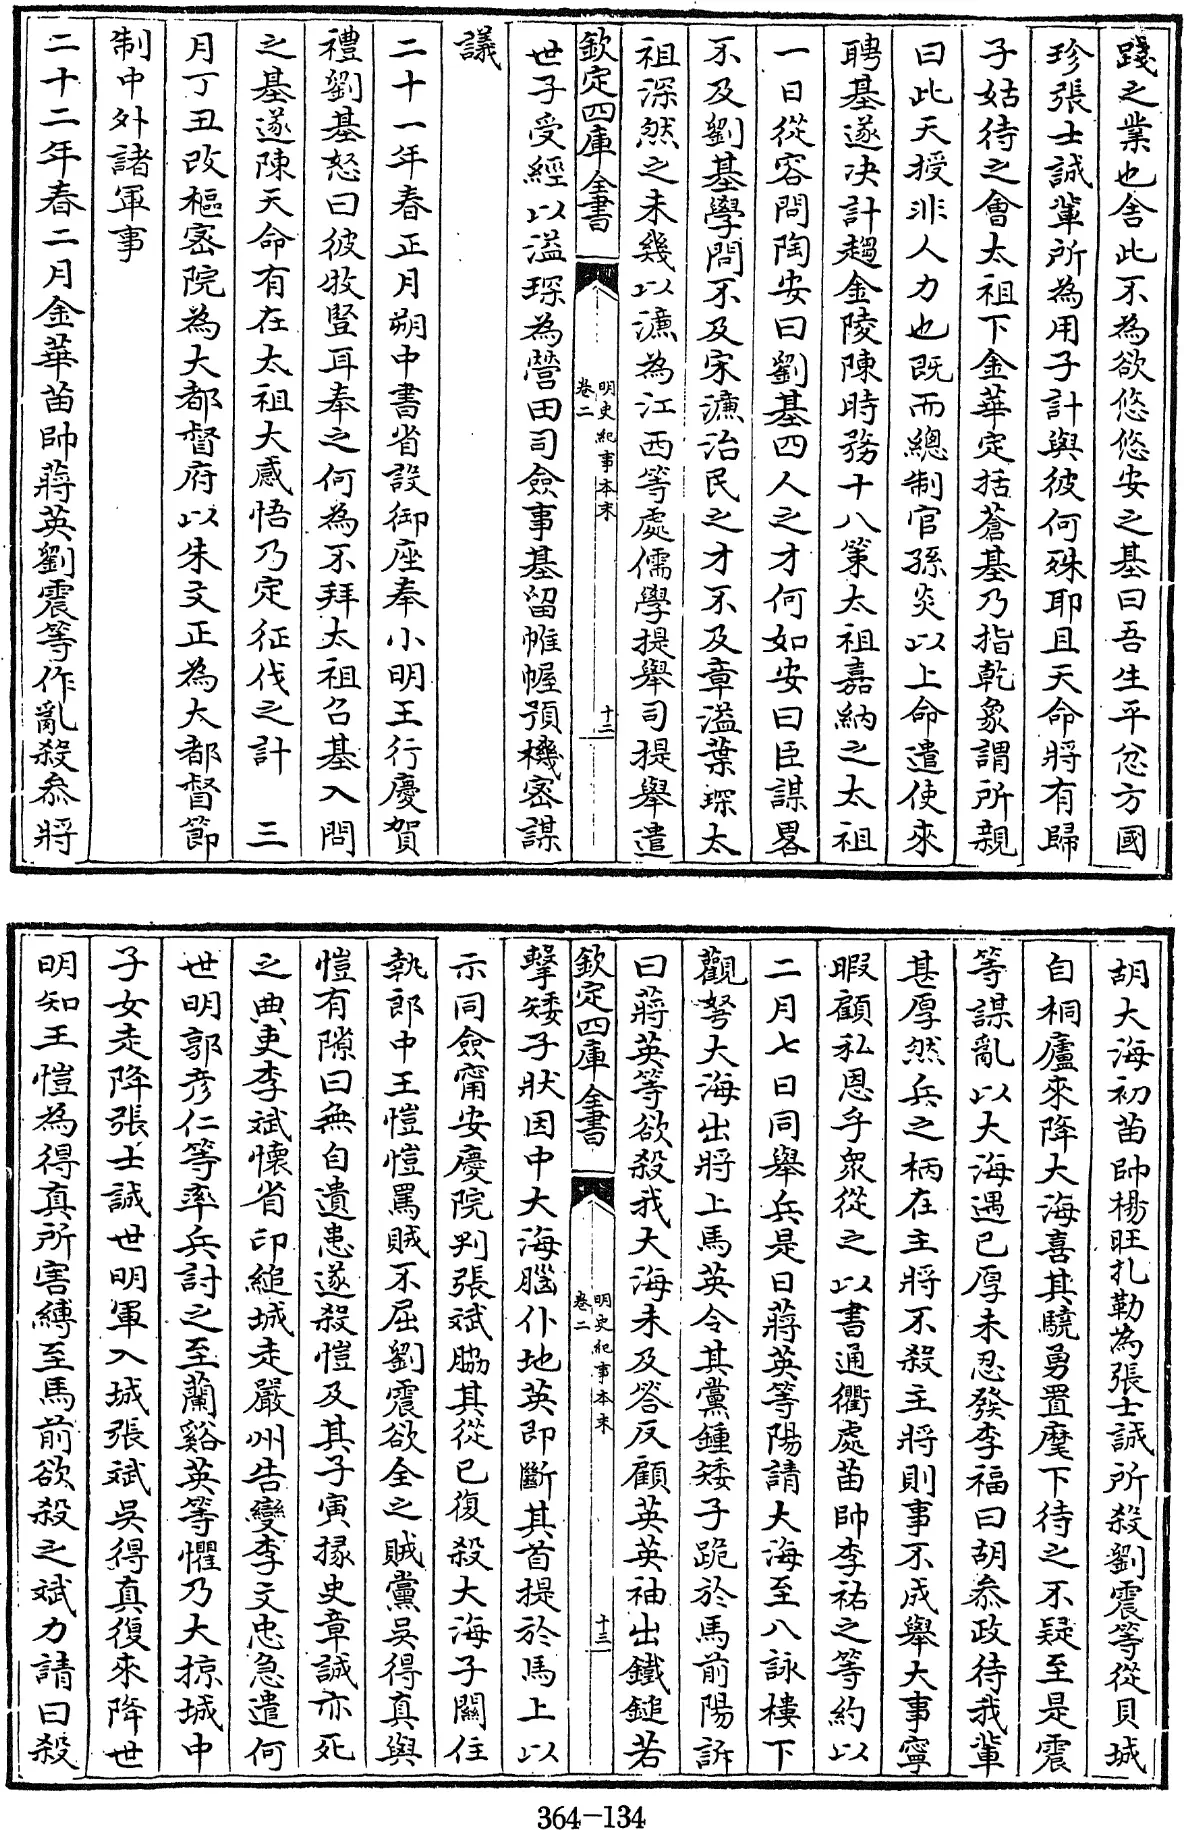 踐之業也舍此不為欲悠悠安之基曰吾生平忿方國
珍張士誠輩所為用子計與彼何殊耶且天命將有歸
子姑待之會太祖下金華定括蒼基乃指乾象謂所親
曰此天授非人力也既而總制官孫炎以上命遣使來
聘基遂决計趨金陵陳時務十八策太祖嘉納之太祖
一日從容問陶安曰劉基四人之才何如安曰臣謀畧
不及劉基學問不及宋濂治民之才不及章溢葉琛太
祖深然之未幾以濂為江西等處儒學提舉司提舉遣
欽定四庫全書
明史紀事本末
卷二
十二
世子受經以溢琛為營田司僉事基留帷幄預機密謀
議
二十一年春正月朔中書省設御座奉小明王行慶賀
禮劉基怒曰彼牧豎耳奉之何為不拜太祖召基入問
之基遂陳天命有在太祖大感悟乃定征伐之計 三
月丁丑改樞密院為大都督府以朱文正為大都督節
制中外諸軍事
二十二年春二月金華苗帥蔣英劉震等作亂殺叅將
胡大海初苗帥楊旺扎勒為張士誠所殺劉震等從員城
自桐廬來降大海喜其驍勇置麾下待之不疑至是震
等謀亂以大海遇已厚未忍發李福曰胡叅政待我輩
甚厚然兵之柄在主將不殺主將則事不成舉大事寧
暇顧私恩乎衆從之以書通衢處苗帥李祐之等約以
二月七日同舉兵是日蔣英等陽請大海至八詠樓下
觀弩大海出將上馬英令其黨鍾矮子跪於馬前陽訴
曰蔣英等欲殺我大海未及答反顧英英袖出鐵鎚若
欽定四庫全書
明史紀事本末
卷二
十三
擊矮子狀因中大海腦仆地英即斷其首提於馬上以
示同僉甯安慶院判張斌脇其從已復殺大海子關住
執郎中王愷愷罵賊不屈劉震欲全之賊黨吳得真與
愷有隙曰無自遺患遂殺愷及其子寅掾史章誠亦死
之典吏李斌懷省印縋城走嚴州告變李文忠急遣何
世明郭彦仁等率兵討之至蘭谿英等懼乃大掠城中
子女走降張士誠世明軍入城張斌吳得真復來降世
明知王愷為得真所害縛至馬前欲殺之斌力請曰殺
364-134